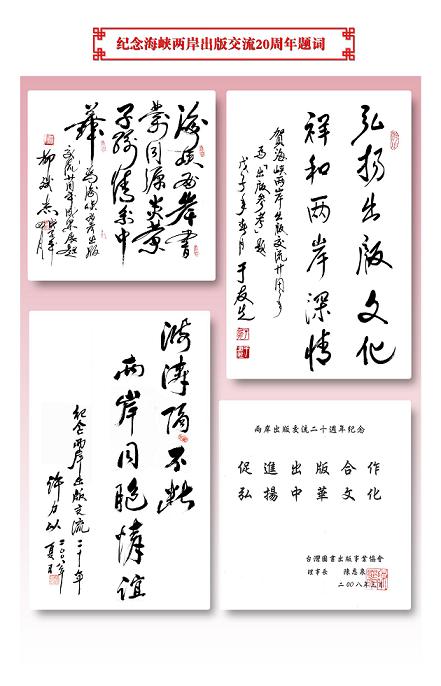 纪念海峡两岸出版交流20周年题词
海峡两岸書
業同源炎黄
子孫情系中
華
为海峡两岸出版
柳斌杰
弘扬出版文化
祥和两岸深情
贺海峡两岸出版交流廿周年
为《出版参考》题
戊子年春月 于友先
隔不断
两岸同胞情谊
纪念两岸出版交流二十年
许力以 二〇〇八年夏
兩岸出版交流二十週年紀念
促進出版合作
弘揚中華文化
台灣圖書出版事業協會
理事長 陳恩泉
二00八年五月